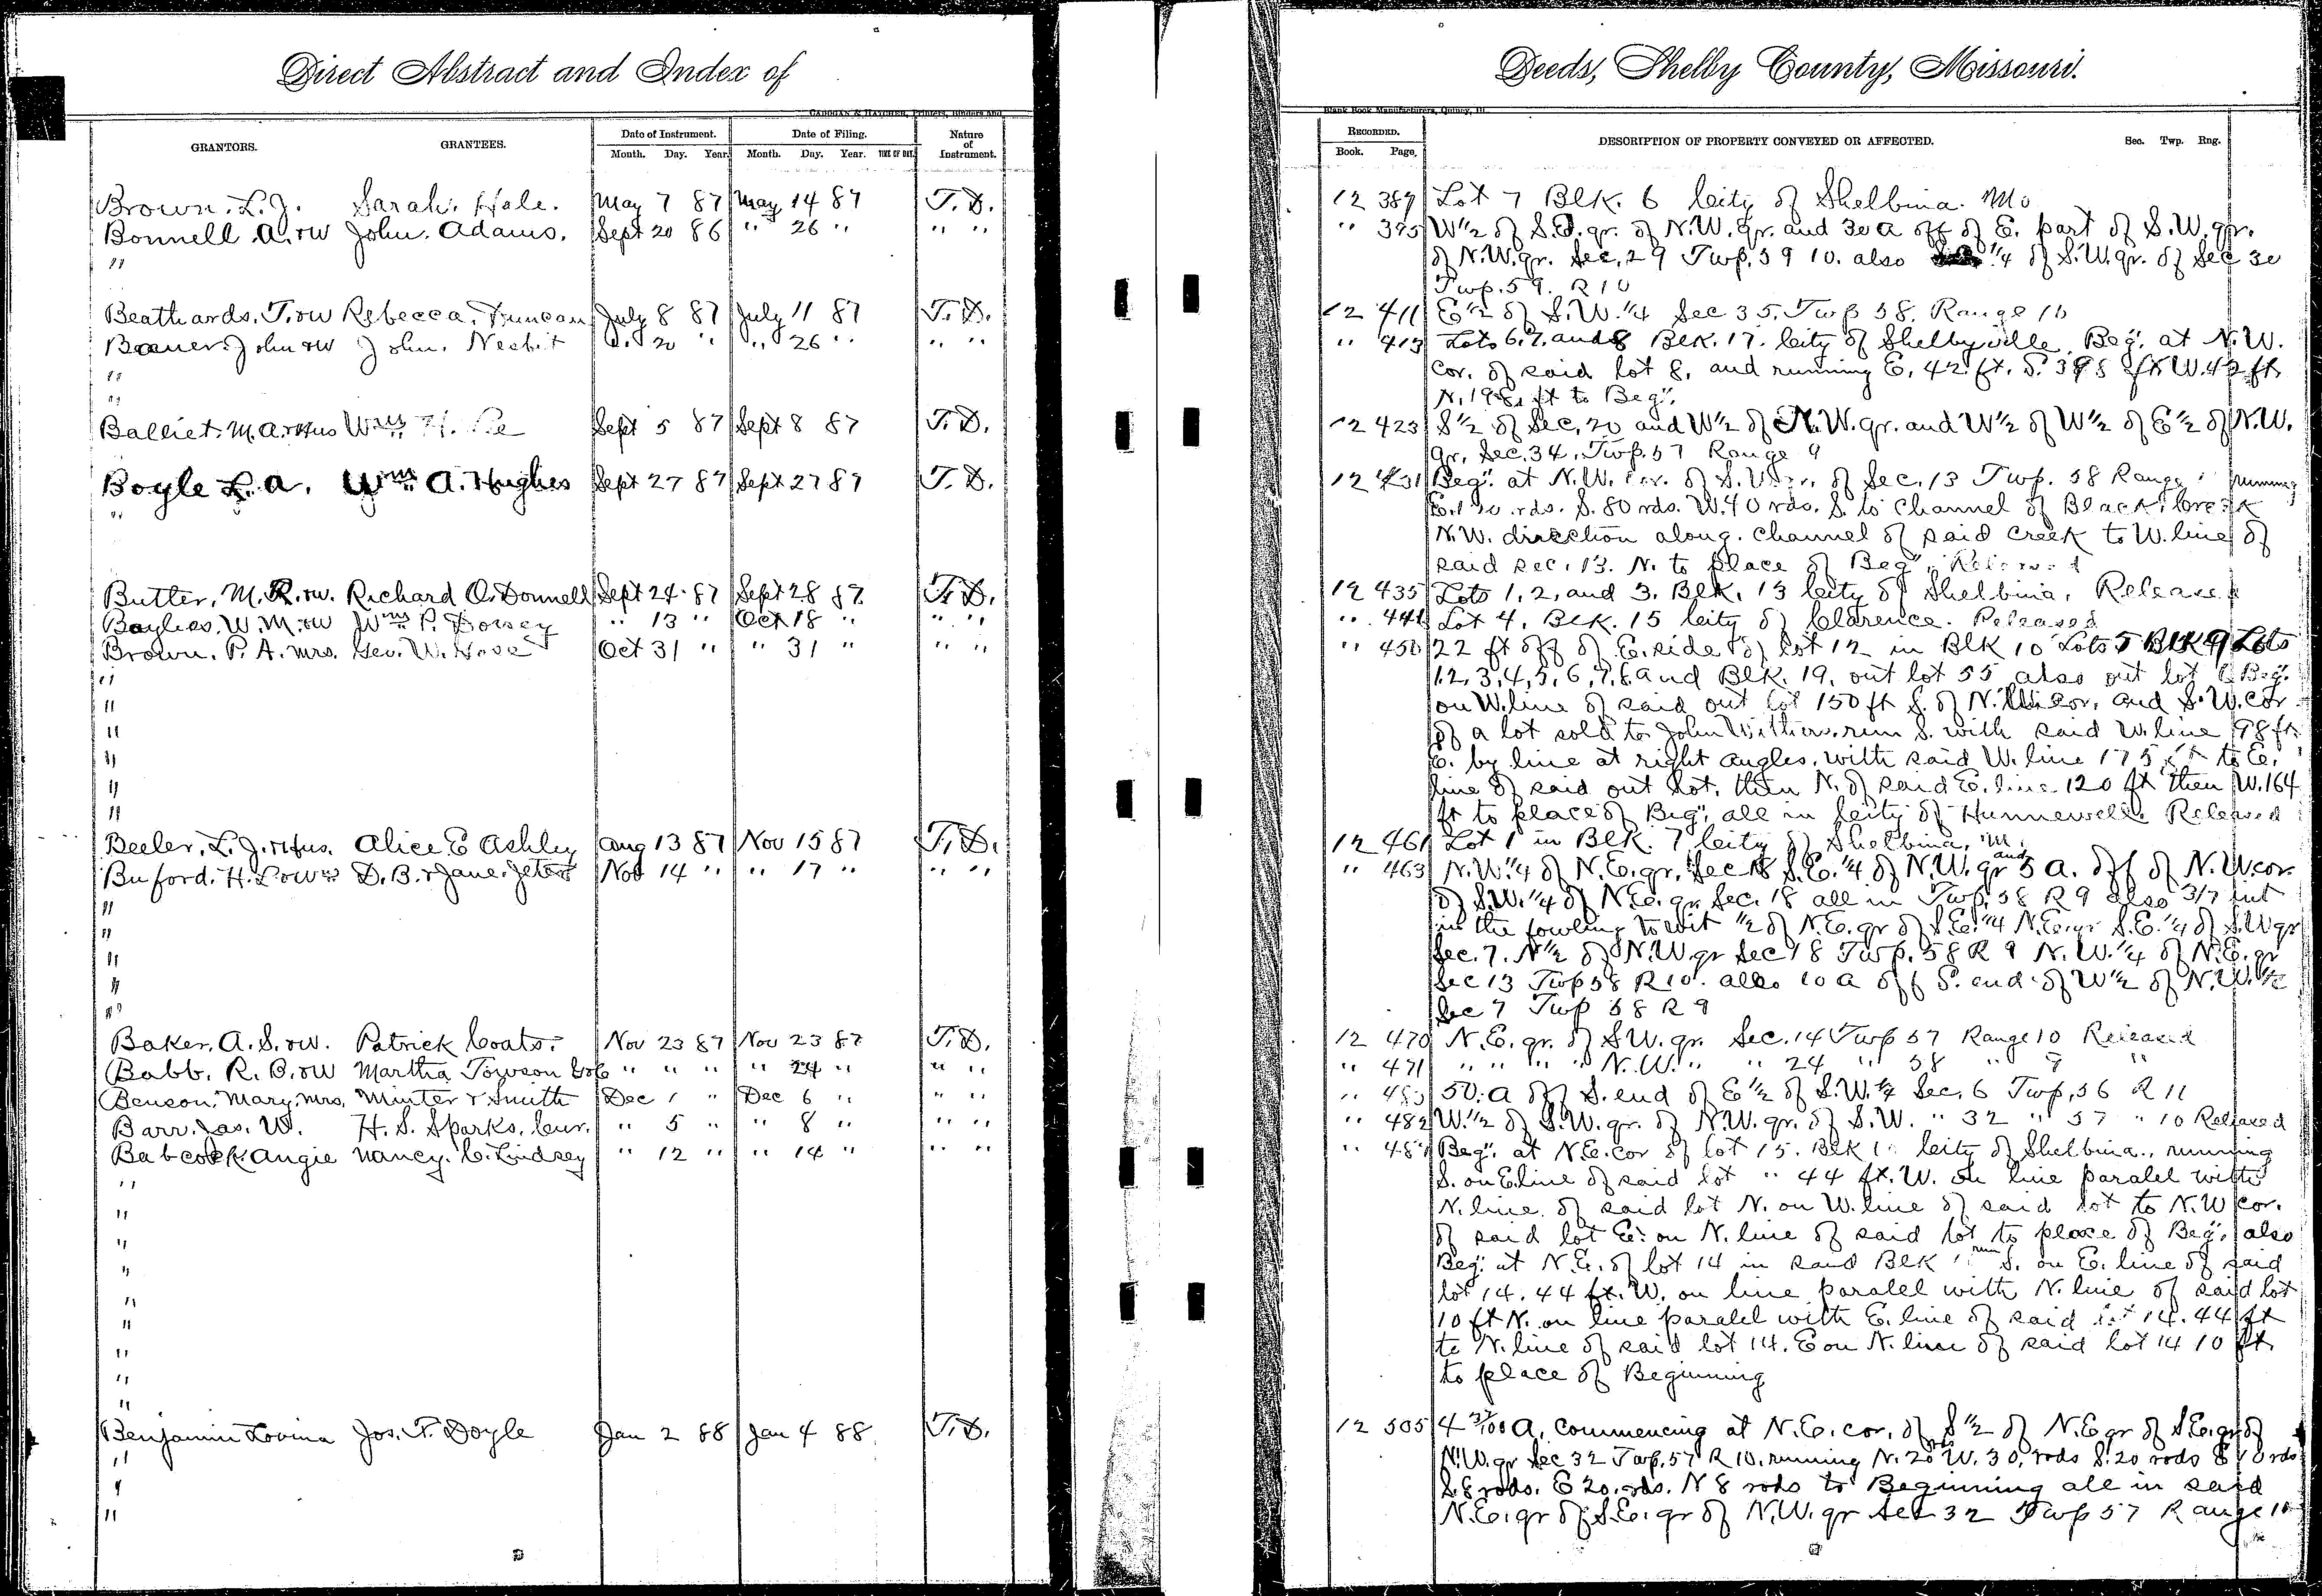 Direct Abstract and Index of
Deeds, Shelby County, Missouri.
CADOGAN & HATCHER, Printers, Binders and
Blank Book Manufacturers, Quincy, Ill.
GRANTORS. GRANTEES. Date of Instrument. Date of Filing. Nature of Instrument.
Month. Day. Year. Month. Day. Year. TIME OF DAY.
RECORDED. DESCRIPTION OF PROPERTY CONVEYED OR AFFECTED. Sec. Twp. Rng.
Book. Page.
Brown. L. J. Sarah. Hale. May 7 87 May 14 87 T. D. 12 389 Lot 7 Blk. 6 City of Shelbina. Mo
Bonnell A. & W John. Adams. Sept 20 86 " 26 " " " " 395 W 1/2 of S.E. qr. of N.W. qr. and 30 a off of E. part of S.W. qr.
" of N.W. qr. Sec. 29 Twp. 59 10. also 1/4 of S.W. qr. of Sec 30
Twp. 59. R 10
Beathards. T. & W Rebecca. Duncan July 8 87 July 11 87 T. D. 12 411 E 1/2 of S.W. 1/4 Sec 35. Twp 58. Range 10
John & W John. Nesbit 20 " " 26 " " " " 413 Lots 6. 7. and 8 Blk. 17. City of Shelbyville. Beg". at N.W.
" cor. of said lot 8. and running E. 42 ft. S. ft. W. 42 ft
" N. ft to Beg".
Balliet. M. A. & Hus Wm H. Sept 5 87 Sept 8 87 T. D. 12 423 S 1/2 of Sec. 20 and W 1/2 of N.W. qr. and W 1/2 of W 1/2 of E 1/2 of N.W.
qr. Sec. 34. Twp. 57 Range 9
Boyle L. A. Wm. A. Hughes Sept 27 87 Sept 27 87 T. D. 12 431 Beg". at N.W. cor. of of Sec. 13 Twp. 58 Range running
" rds. S. 80 rds. W. 40 rds. S. to Channel of Black Creek
N.W. direction along. channel of said creek to W. line of
said sec. 13. N. to place of Beg". Released
Butter, M. R. & W. Richard O. Donnell Sept 24 87 Sept 28 87 T. D. 12 435 Lots 1, 2, and 3. Blk. 13 City of Shelbina. Released
Bayliss. W. M. & W Wm P. Dorsey " 13 " Oct 18 " " " " 441 Lot 4. Blk. 15 City of Clarence. Released
Brown. P. A. Mrs. Geo. W. Oct 31 " " 31 " " " " 450 22 ft off of E. side of lot 12 in Blk 10 Lots 5 Blk 9 Lots
" 1. 2, 3, 4, 5, 6, 7, 8, and Blk. 19. out lot 55 also out lot Beg".
" on W. line of said out lot 150 ft S. of cor. and S.W. cor
" of a lot sold to John run S. with said W. line 98 ft
" E. by line at right angles. with said W. line 175 ft to E.
" line of said out lot. then N. of said E. line 120 ft then W. 164
" ft to place of Beg". all in City of Hunnewell. Released
Beeler. L. J. & Hus. Alice E Ashley Aug 13 87 Nov 15 87 T. D. 12 461 Lot 1 in Blk. 7 City of Shelbina, M.
Buford. H. D. B. & Jane. Jeter Nov 14 " " 17 " " " " 463 N.W. 1/4 of N.E. qr. Sec 18 S.E. 1/4 of N.W. qr and 5 a. off of N.W. cor.
" of S.W. 1/4 of N.E. qr. Sec. 18 all in Twp. 58 R 9 also 3/7 int
" in the fowling to wit 1/2 of N.E. qr of S.E. 1/4 N.E. qr S.E. 1/4 of S.W qr
" Sec. 7. N 1/2 of N.W. qr Sec 18 Twp. 58 R 9 N.W. 1/4 of N.E. qr
" Sec 13 Twp 58 R 10. also 10 a off S. end of W 1/2 of N.W.
" Sec 7 Twp 58 R 9
Baker. A. S. & W. Patrick Coats. Nov 23 87 Nov 23 87 T. D. 12 470 N.E. qr. of S.W. qr. Sec. 14 Twp 57 Range 10 Released
Babb. R. B. & W Martha Towson " " " " 24 " " " " 471 " " " " N.W. " " 24 " 58 " 9 "
Benson. Mary. Mrs. Minter & Smith Dec 1 " Dec 6 " " " " 50. a off S. end of E 1/2 of S.W. 1/4 Sec. 6 Twp. 56 R 11
Barr. Jas. W. H. S. Sparks. Cur. " 5 " " 8 " " " " 482 W. 1/2 of S.W. qr. of N.W. qr. of S.W. " 32 " 57 " 10 Released
Babcock Angie Nancy. C. Lindsey " 12 " " 14 " " " " Beg". at N.E. cor of lot 15. Blk City of Shelbina., running
" S. on E. line of said lot " 44 ft. W. on line paralel with
" N. line. of said lot N. on W. line of said lot to N.W cor.
" of said lot E. on N. line of said lot to place of Beg". also
" Beg". at N.E. of lot 14 in said Blk run S. on E. line of said
" lot 14. 44 ft. W. on line paralel with N. line of said lot
" 10 ft N. on line paralel with E. line of said lot 14. 44 ft
" to N. line of said lot 14. E on N. line of said lot 14 10 ft
" to place of Beginning
"
Benjamin Lovina Jos. T. Doyle Jan 2 88 Jan 4 88 T. D. 12 505 4 37/100 a. commencing at N.E. cor. of S 1/2 of N.E qr of S.E. qr of
" N.W. qr Sec 32 Twp. 57 R 10. running N. 20 rds W. 30. rods S. 20 rods E 10 rds
" S. 8 rods. E 20. rds. N 8 rods to Beginning all in said
" N.E. qr of S.E. qr of N.W. qr Sec 32 Twp 57 Range 10